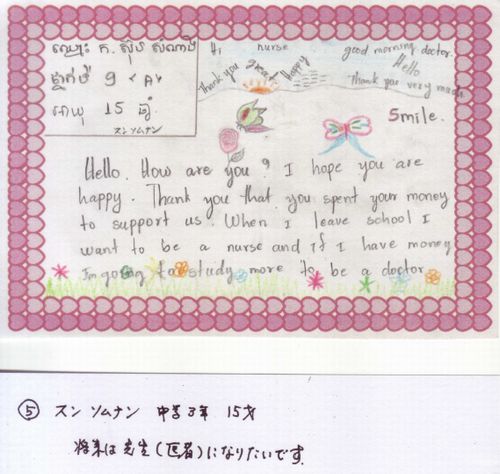 ឈ្មោះ ក. ស៊ុន សំណាង
ថ្នាក់ទី 9 < A >
អាយុ 15 ឆ្នាំ
スンソムナン
Hi nurse
Thank you great Happy
good morning doctor.
Hello
Thank you very much
Smile.
Hello. How are you? I hope you are
happy. Thank you that you spent your money
to support us. When I leave school I
want to be a nurse and if I have money
I'm going to study more to be a doctor
⑤ スン ソムナン 中学3年 15才
将来は先生(医者)になりたいです。